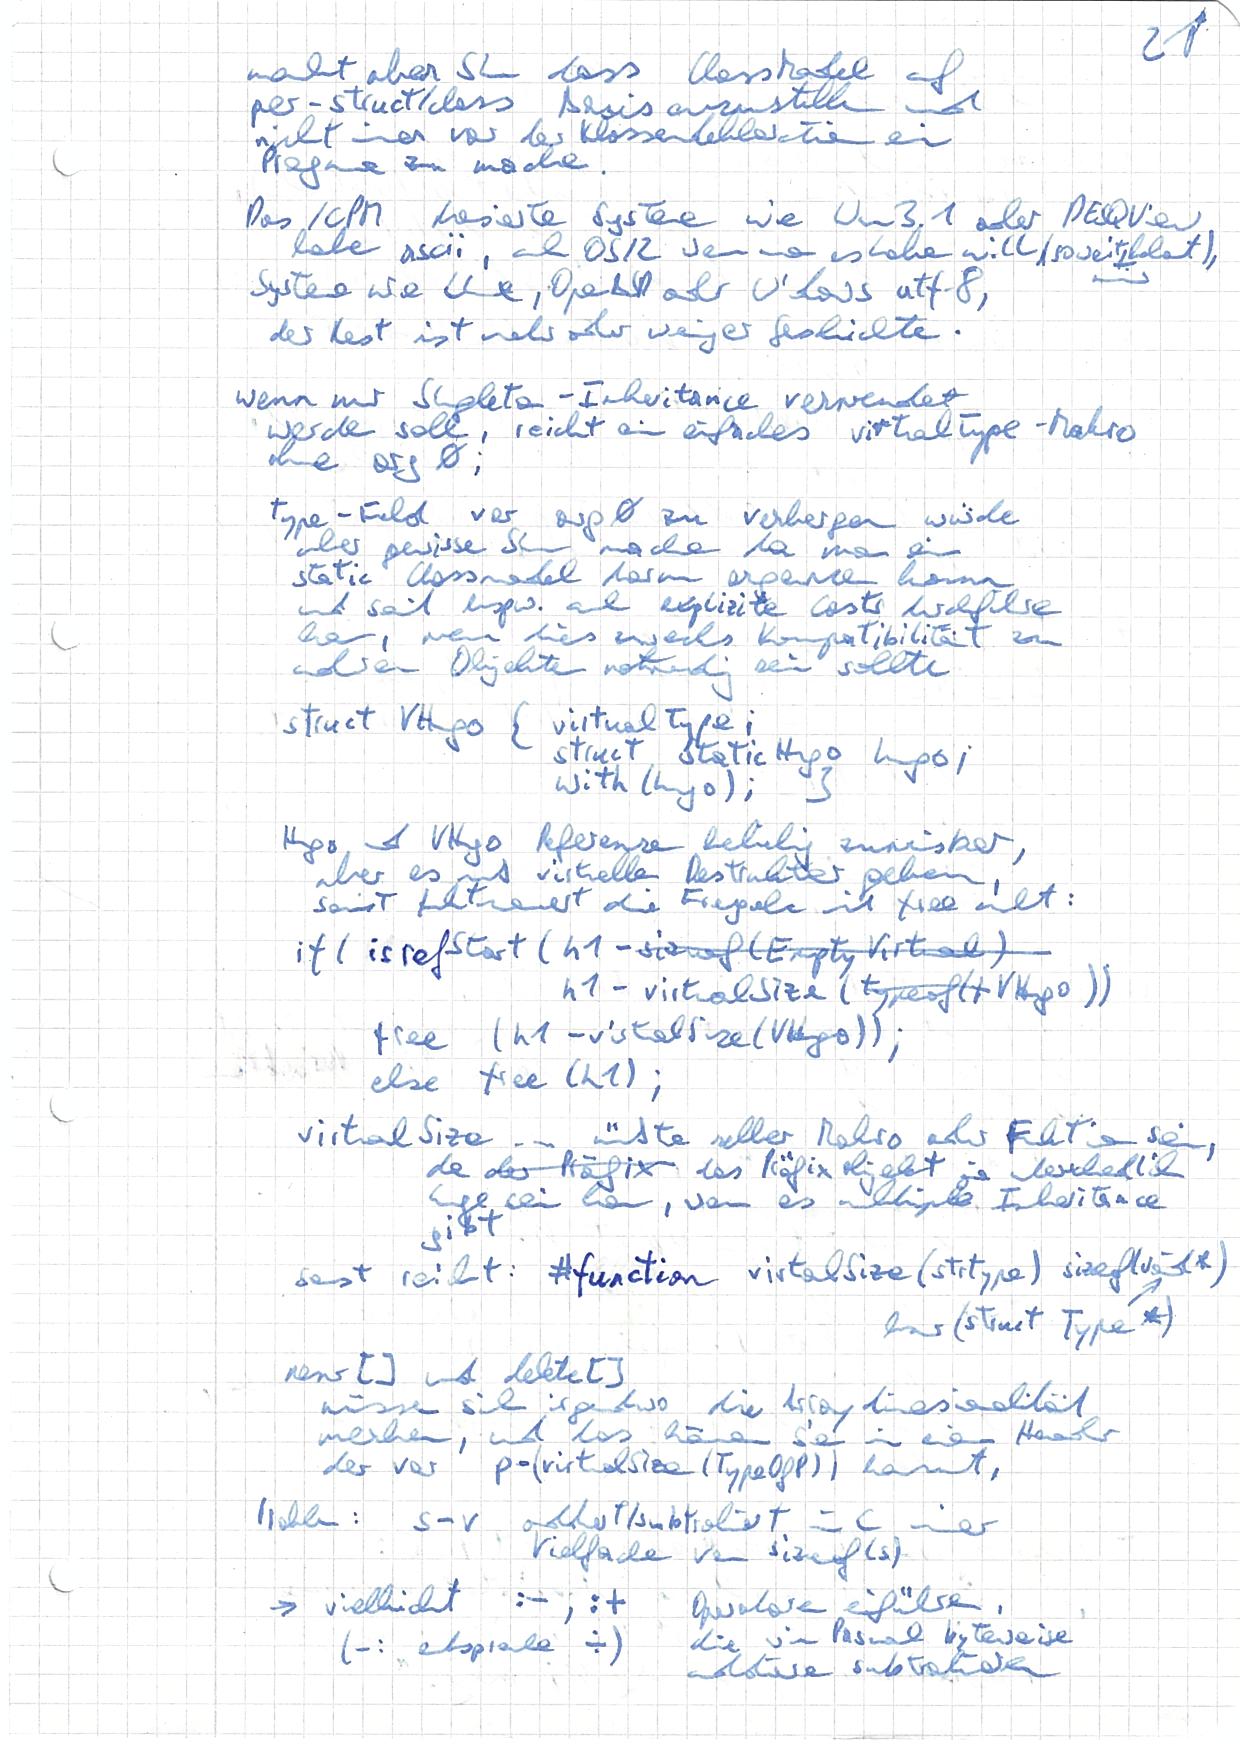 21
macht aber Sinn dass ClassModel auf
per-struct/class Basis einzustellen und
nicht immer vor der Klassendeklaration ein
Pragma zu machen.
Dos/CPM basierte Systeme wie Win3.1 oder DESQView
habe ascii, auch OS/2 wenn man es habe will (soweit bekannt),
Systeme wie Linux, oder Windows utf-8,
der Rest ist mehr oder weniger Geschichte.
wenn nur Singleton-Inheritance verwendet
werde soll, reicht ein einfaches virtualtype-Makro
ohne org 0;
type-Feld vor org 0 zu verbergen würde
aber gewisse Sinn mache da man ein
static Classmodel darum organisieren kann
und seit bspw. auch explizite Casts durchführe
kann, wenn dies zwecks Kompatibilität zu
anderen Objekte notwendig sein sollte
struct VHugo { virtualType;
struct staticHugo hugo;
with(hugo); }
Hugo und VHugo Referenzen beliebig zuweisbar,
aber es muss virtuelle Destruktor geben,
sonst funktioniert die Freigabe mit free nicht:
if( isrefStart(h1 - sizeof(EmptyVirtual)
h1 - virtualSize(typeof(*VHugo))
free (h1 - virtualSize(VHugo));
else free (h1);
virtualSize ... müsste selber Makro oder Funktion sein,
da der Präfix das Präfixobjekt ja unterschiedlich
lange sein kann, wenn es multiple Inheritance
gibt
sonst reicht: #function virtualSize(strtype) sizeof(void*)
bzw (struct Type *)
new[] und delete[]
müsse sich irgendwo die Arraydimensionalität
merken, und das können Sie in einem Header
der vor p-(virtualSize(TypeOfP)) kommt,
Problem: s-v addiert/subtrahiert in C immer
Vielfache von sizeof(s)
→ vielleicht :- , :+ Operatoren einführen,
(-: entspreche ÷) die wie in Pascal byteweise
addiere subtrahieren